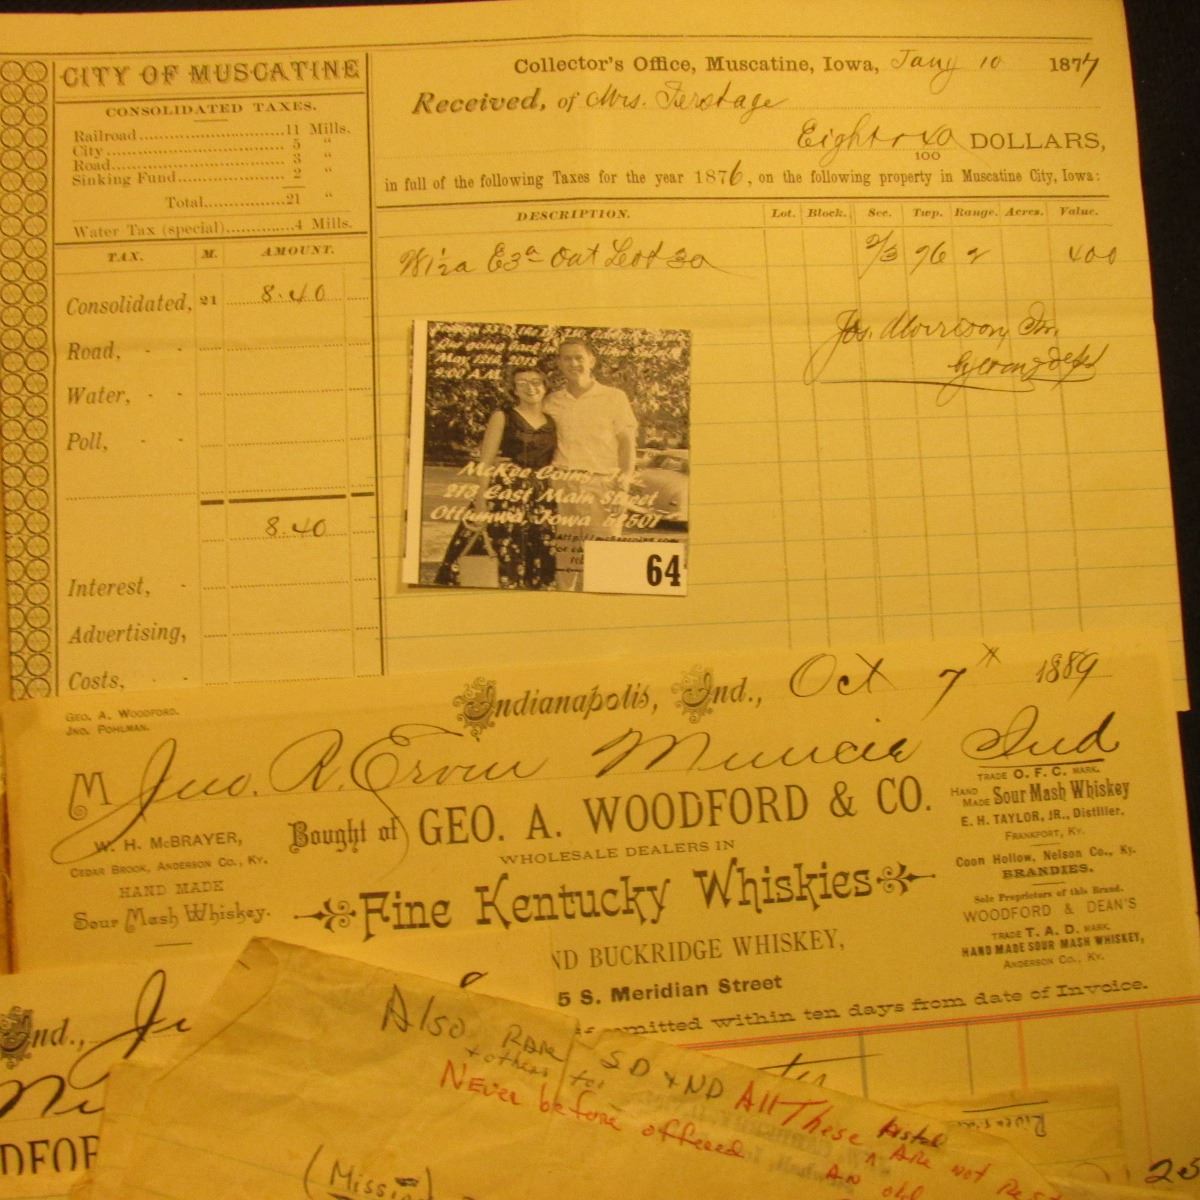 CITY OF MUSCATINE
CONSOLIDATED TAXES.
Railroad....................11 Mills.
City.................... 5 "
Road.................... 3 "
Sinking Fund.................... 2 "
Total................21 "
Water Tax (special).............4 Mills.
TAX. M. AMOUNT.
Consolidated, 21 8.40
Road, - -
Water, - -
Poll, - -
8.40
Interest, -
Advertising,
Costs, - -
Collector's Office, Muscatine, Iowa, Jany 10 1877
Received, of Mrs.
Eight & 40/100 DOLLARS,
in full of the following Taxes for the year 1876, on the following property in Muscatine City, Iowa:
DESCRIPTION. Lot. Block. Sec. Twp. Range. Acres. Value.
Out Lot 30 2/3 76 2 400
Jos. Morrison
May 12th, 2018
9:00 A.M.
McKee Coins, Inc.
213 East Main Street
Ottumwa, Iowa 52501
64
GEO. A. WOODFORD.
JNO. POHLMAN.
Indianapolis, Ind., Oct 7th 1889
M Jno. R. Ervin Muncie Ind
Bought of GEO. A. WOODFORD & CO.
WHOLESALE DEALERS IN
Fine Kentucky Whiskies
ND BUCKRIDGE WHISKEY,
5 S. Meridian Street
mitted within ten days from date of Invoice.
W. H. McBRAYER,
CEDAR BROOK, ANDERSON CO., KY.
HAND MADE
Sour Mash Whiskey.
TRADE O. F. C. MARK.
HAND MADE Sour Mash Whiskey
E. H. TAYLOR, JR., Distiller,
FRANKFORT, KY.
Coon Hollow, Nelson Co., Ky.
BRANDIES.
Sole Proprietors of this Brand.
WOODFORD & DEAN'S
TRADE T. A. D. MARK.
HAND MADE SOUR MASH WHISKEY,
ANDERSON CO., KY.
nd.,
DFOR
Also RARE SD & ND All These pistol
& others too
Never before offered ARE not
AN old
(Missi
23